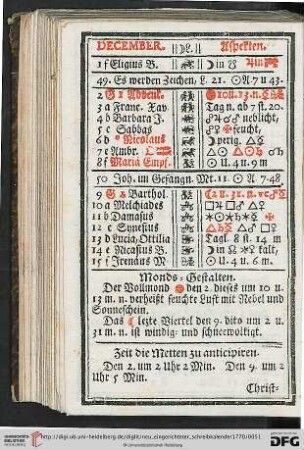 DECEMBER. ☽L. Aspekten.
1 f Eligius B. ☽ in ☋ ♃ in
49. Es werden Zeichen, L. 21. ☉ A 7 u 43.
2 G 1 Advent.
3 a Franc. Xav Tag n. ab 7 st. 20.
4 b Barbara J. neblicht,
5 c Sabbas feucht,
6 d Nicolaus
7 e Ambr.
8 f Maria Empf. ☉ u. 4 u. 9 m
50 Joh. im Gefängn. Mt. 11. ☉ A 7-48
9 G 2 Barthol.
10 a Melchiades
11 b Damasus
12 c Synesius
13 d Lucia, Ottilia Tagl. 8 st. 14 m
14 e Nicasius B. ☽ in kalt,
15 f Irenäus M ☉ u. 4 u. 6 m.
Monds-Gestalten.
Der Vollmond den 2. dieses um 10 u.
13 m. n. verheißt feuchte Luft mit Nebel und
Sonneschein.
Das lezte Viertel den 9. dito um 2 u.
31 m. n. ist windig- und schneewolkigt.
Zeit die Metten zu anticipiren.
Den 2. um 2 Uhr 2 Min. Den 9. um 2
Uhr 5 Min.
Christ-
http://digi.ub.uni-heidelberg.de/diglit/neu_eingerichteter_schreibkalender1770/0051
© Universitätsbibliothek Heidelberg
gefördert durch die
DFG